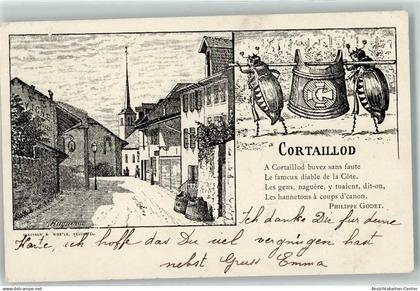 CORTAILLOD
A Cortaillod buvez sans faute
Le fameux diable de la Côte.
Les gens, naguère, y tuaient, dit-on,
Les hannetons à coups d'canon.
PHILIPPE GODET.
Ich danke Dir für deine
Karte, ich hoffe das Du viel vergnügen hast
nebst Gruss Emma
oldthing
Ansichtskarten-Center